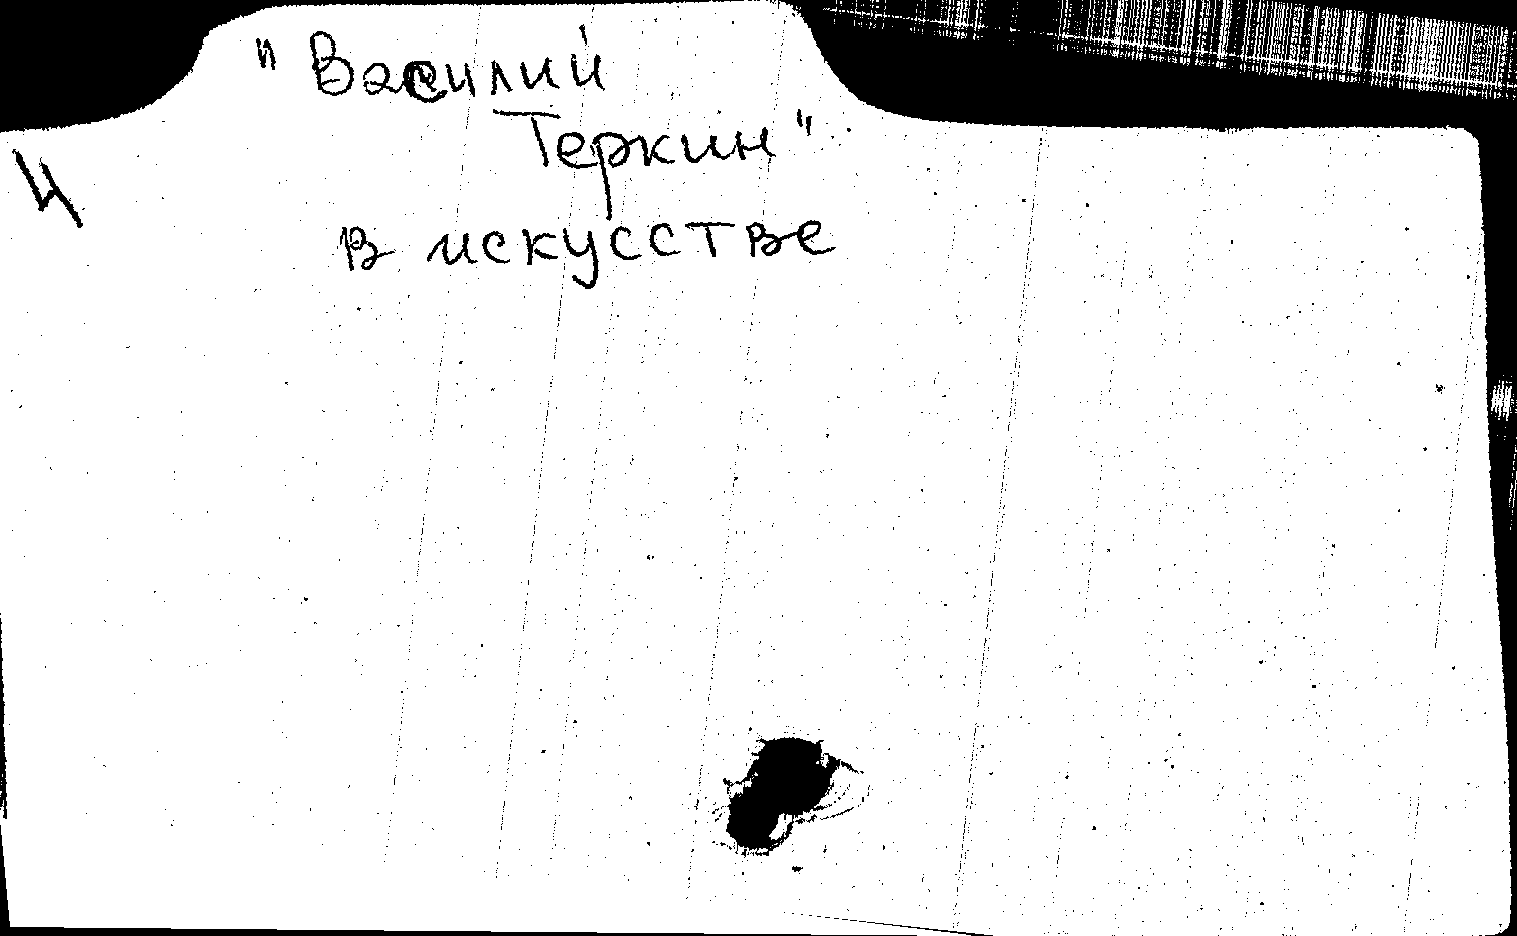 "Василий
Теркин"
в искусстве
4